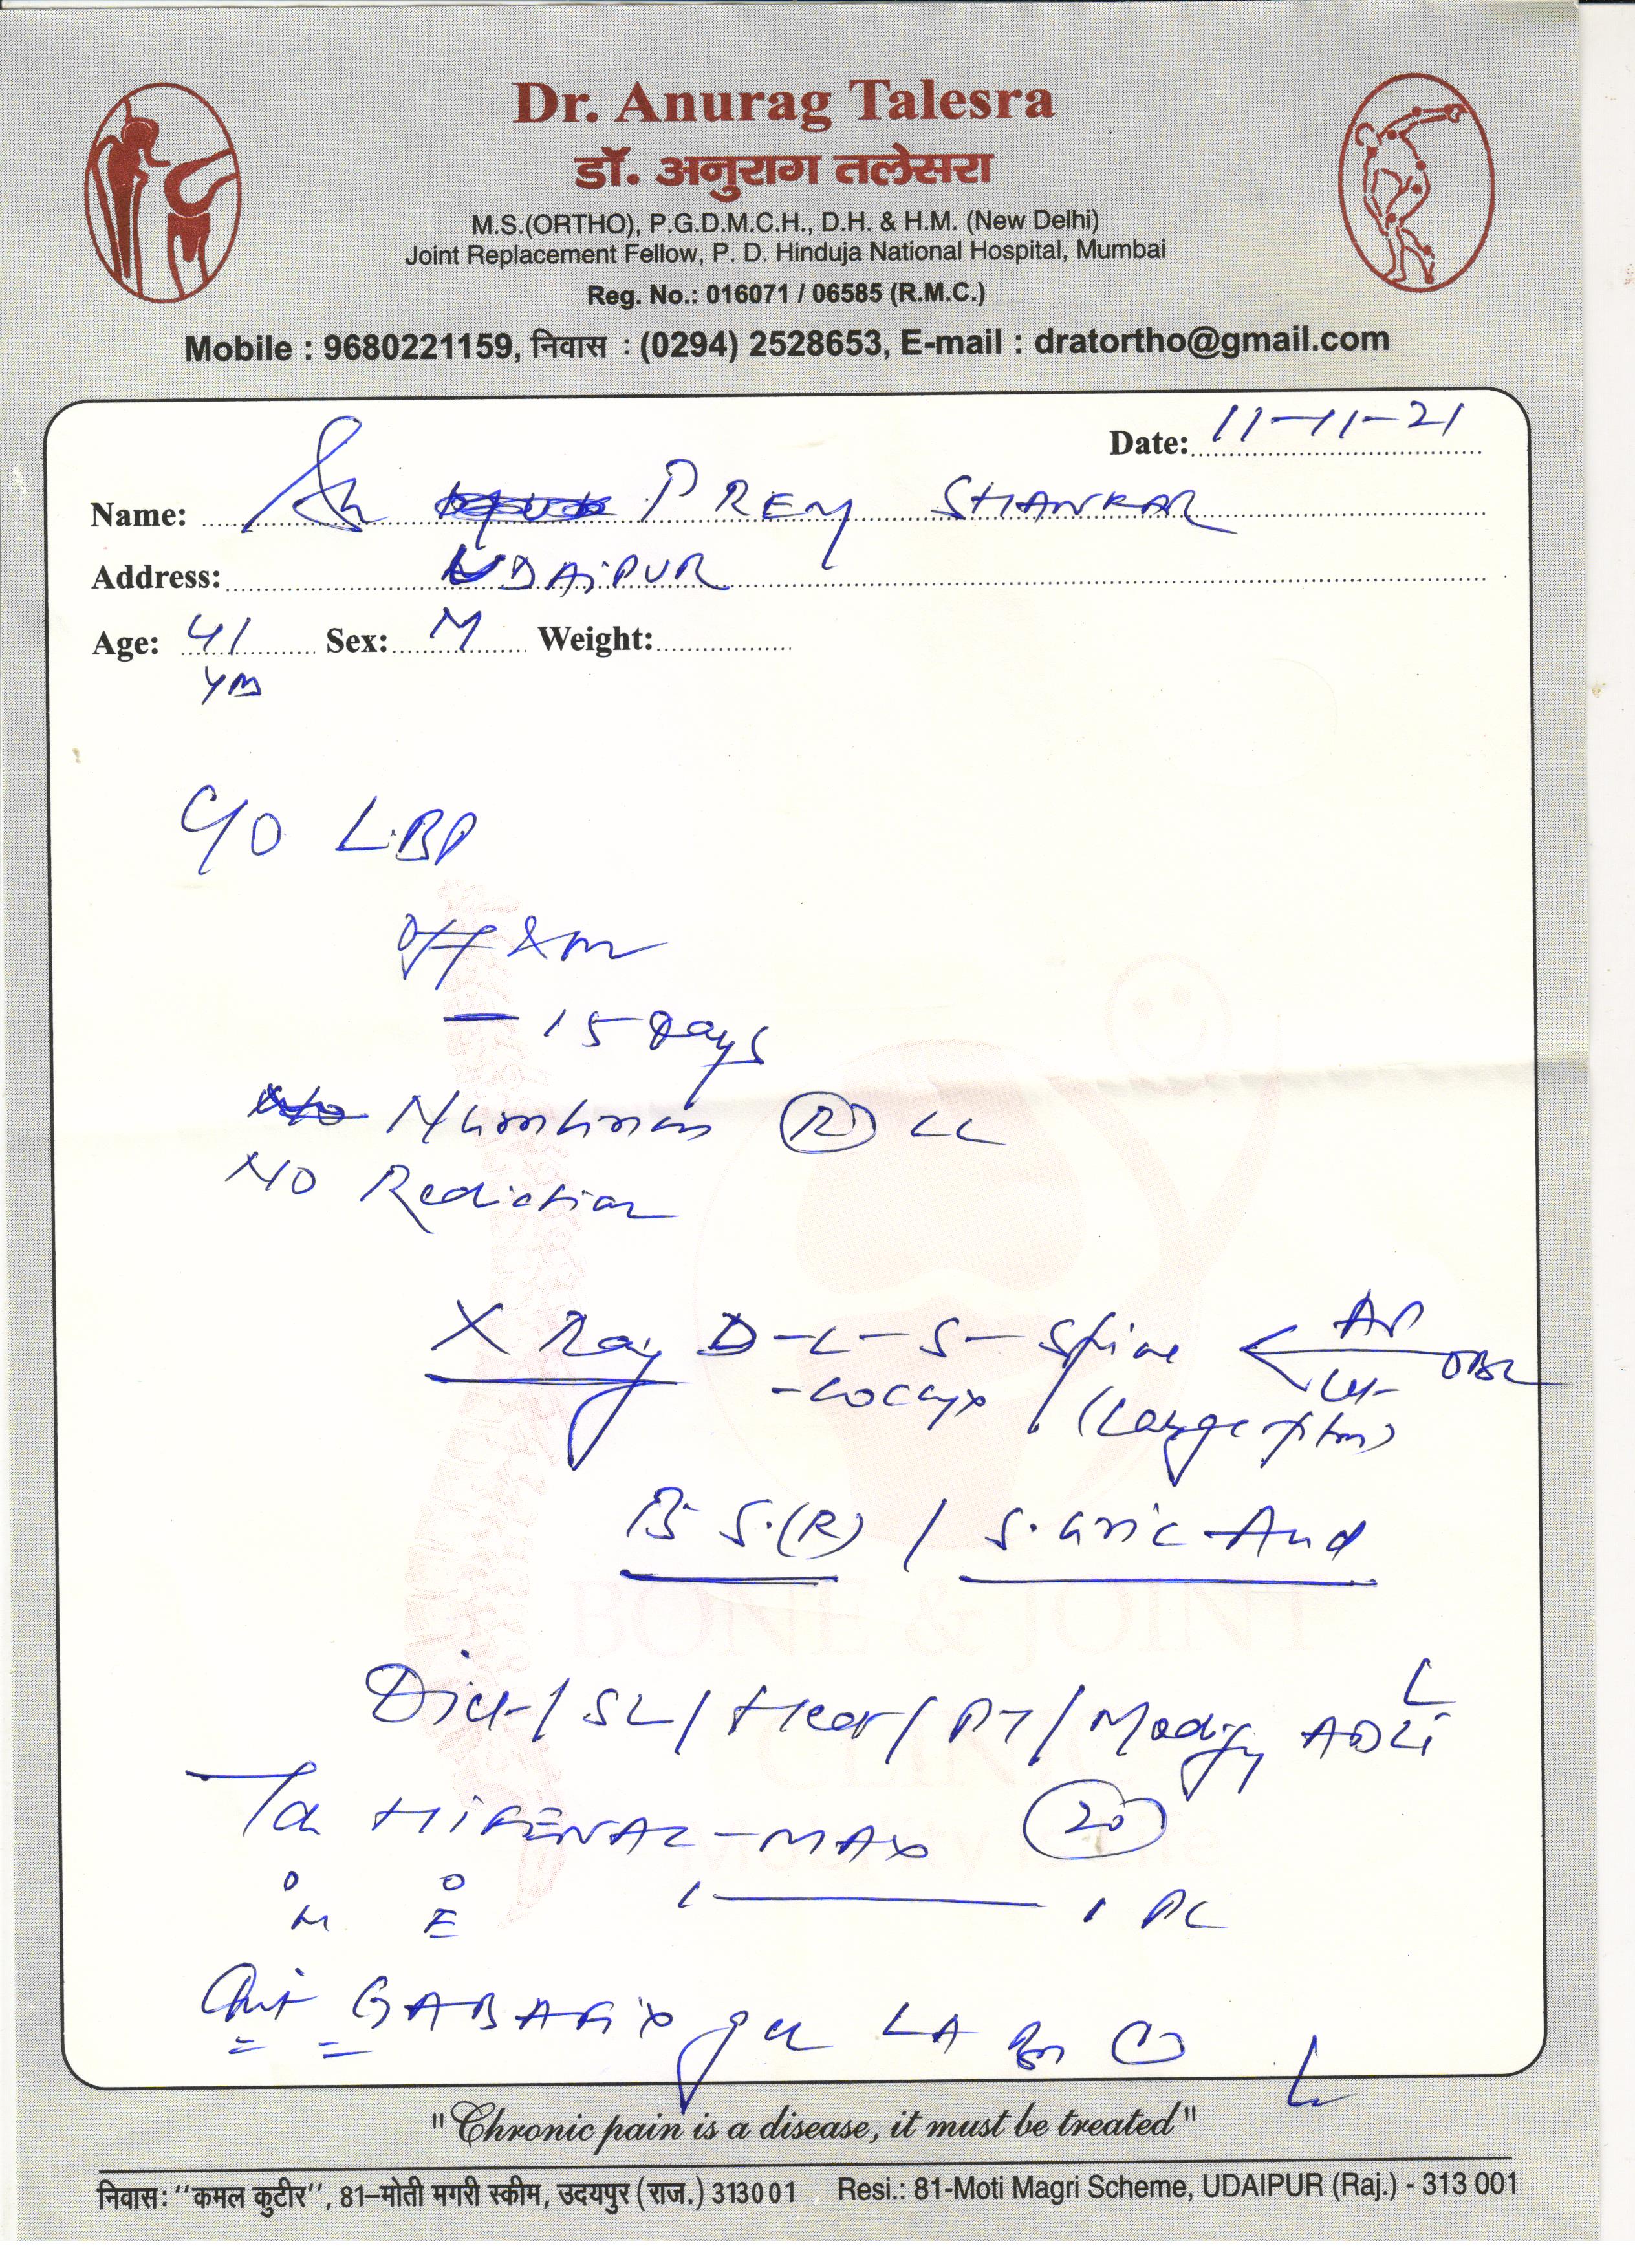 Dr. Anurag Talesra
डॉ. अनुराग तलेसरा
M.S.(ORTHO), P.G.D.M.C.H., D.H. & H.M. (New Delhi)
Joint Replacement Fellow, P. D. Hinduja National Hospital, Mumbai
Reg. No.: 016071 / 06585 (R.M.C.)
Mobile : 9680221159, निवास : (0294) 2528653, E-mail : dratortho@gmail.com
Date: 11-11-21
Name: Sh PREM SHANKAR
Address: UDAIPUR
Age: 41 Sex: M Weight:
C/O LBP
Off & on
- 15 Days
Numbness (R) LL
NO Rediation
X Ray D-L-S-Spine AP
-coccyx (Large film)
S.(R) / S. Uric Acid
Diet / SL / Heat / PT / Modify ADL
HIFENAC-MAX 20
M E
1 1 PC
GABAFIX gel LA
BONE & JOINT
"Chronic pain is a disease, it must be treated"
निवास: ‘‘कमल कुटीर’’, 81–मोती मगरी स्कीम, उदयपुर (राज.) 313001 Resi.: 81-Moti Magri Scheme, UDAIPUR (Raj.) - 313 001